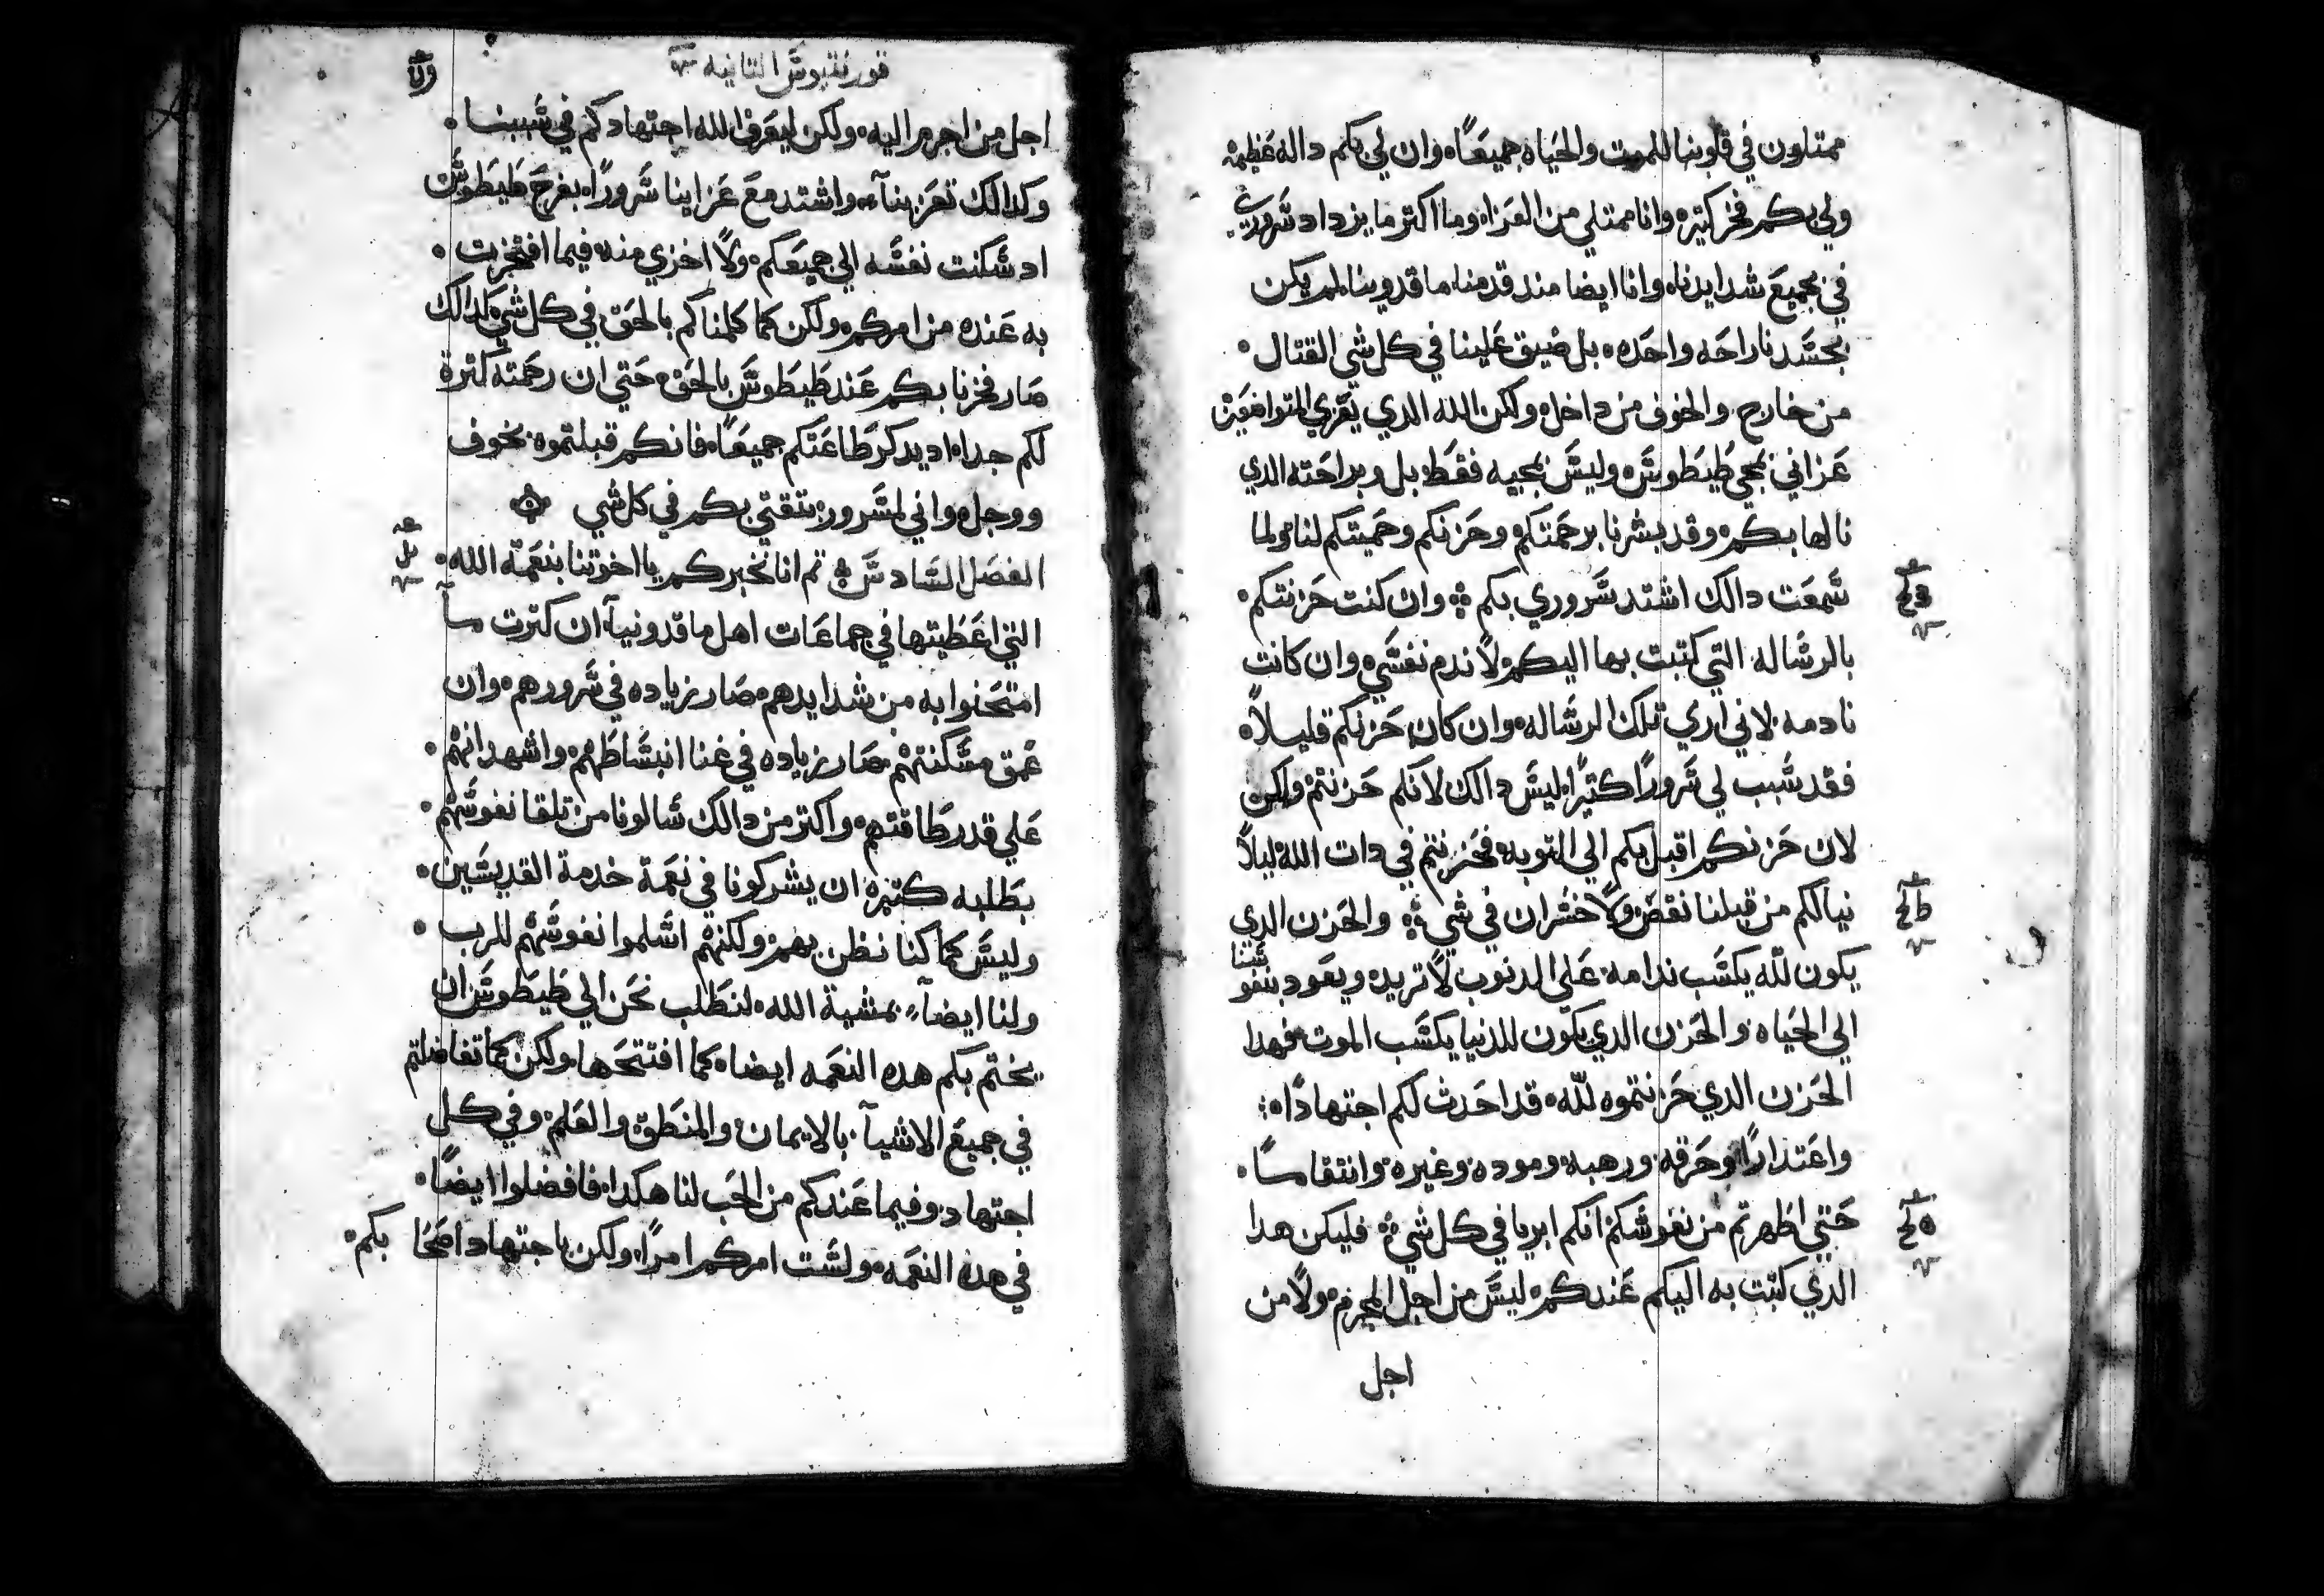 ممتلون في قلوبنا للموت والحياه جميعًا وان لي بكم داله عظيمه
ولي بكم فخر كتير وانا ممتلي من العزا وما اكتر ما يزداد سروري
في جميع شدايدنا وانا ايضا مند قدمنا ماقدونيا لم يكن
بجسدنا راحه واحده بل ضيق علينا في كل شي القتال
من خارج والخوف من داخل ولكن الله الدي يعزي المتواضعين
عزاني بمجي طيطوس وليس بمجيه فقط بل وبراحته الدي
نالها بكم وقد بشرنا برحمتكم وحزنكم وحميتكم لنا ولما
سمعت دالك اشتد سروري بكم وان كنت حزنتكم
بالرساله التي كتبت بها اليكم لا ندم نفسي وان كانت
نادمه لاني اري تلك الرساله وان كان حزنكم قليلاً
فقد سبب لي سرورًا كتيرًا ليس دالك لانكم حزنتم ولكن
لان حزنكم اقبل بكم الي التوبه فحزنتم في دات الله ليلاً
نيالكم من قبلنا نقص ولا خسران في شي والحزن الدي
يكون لله يكسب ندامه علي الدنوب لا تريد ويعود بنفوسنا
الي الحياه والحزن الدي يكون للدنيا يكسب الموت فهدا
الحزن الدي حزنتموه لله قد احدث لكم اجتهادًا
واعتدارًا وحرقه ورهبه وموده وغيره وانتقامسًا
حتي اظهرتم من نفوسكم انكم ابريا في كل شي فليكن هدا
الدي كتبت به اليكم عندكم ليس من اجل المجرم ولا من
اجل
قورنتيوس التانيه
اجل من اجرم اليه ولكن ليعرف الله اجتهادكم في سببنا
وكدالك تعزينآ واشتد مع عزاينا سرورًا بفرح طيطوس
اد سكنت نفسه الي جميعكم ولا اخزي منه فيما افتخرت
به عنده من امركم ولكن كما كلمناكم بالحق في كل شي كدالك
صار فخرنا بكم عند طيطوس بالحق حتي ان رحمته كترة
لكم جدا اد يدكر طاعتكم جميعًا فانكم قبلتموه بخوف
ووجل واني لمسرور بتقتي بكم في كل شي
الفصل السادس تم انا نخبركم يا اخوتنا بنعمة الله
التي اعطيتها في جماعات اهل ماقدونيآ ان كترت مآ
امتحنوا به من شدايدهم صار زياده في سرورهم وان
عمق مسكنتهم صار زياده في غنا انبساطهم واشهد انهم
علي قدر طاقتهم واكتر من دالك سالونا من تلقا نفوسهم
بطلبه كتيره ان يشركونا في نعمة خدمة القديسين
وليس كما كنا نظن بهم ولكنهم اسلموا نفوسهم للرب
ولنا ايضآ بمشية الله لنطلب نحن الي طيطوس ان
يختم بكم هده النعمه ايضا كما افتتحها ولكن كما تفاضلتم
في جميع الاشيآ بالايمان والمنطق والعلم وفي كل
اجتهاد وفيما عندكم من الحب لنا هكدا فافضلوا ايضًا
في هده النعمه ولست امركم امرًا ولكن باجتهاد اصحا بكم